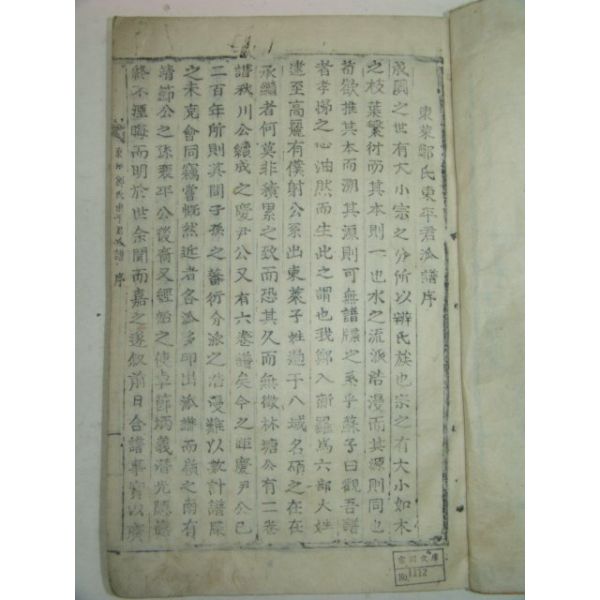 東萊鄭氏東平君派譜序
成周之世有大小宗之分所以辨氏族也宗之有大小如木
之枝葉繁衍而其本則一也水之流派浩漫而其源則同也
苟欲推其本而溯其源則可無譜牒之系乎蘇子曰觀吾譜
者孝悌之心油然而生此之謂也我鄭入新羅爲六部大姓
逮至高麗有僕射公系出東萊子姓遍于八域名碩之在在
承繼者何莫非積累之致而恐其久而無徵林塘公有二卷
譜秋川公續成之慶尹公又有六卷譜矣今之距慶尹公已
二百年所則其間子孫之蕃衍分派之浩漫難以數計譜牒
之未克會同竊嘗慨然近者各派多印出派譜而嶺之南有
靖節公之孫襄平公裔又經始之使卓節炳義潛光
終不湮晦而明於世余聞而嘉之遂叙前日合譜事實以廣
東萊鄭氏東平君派譜 序
一
No. 1112